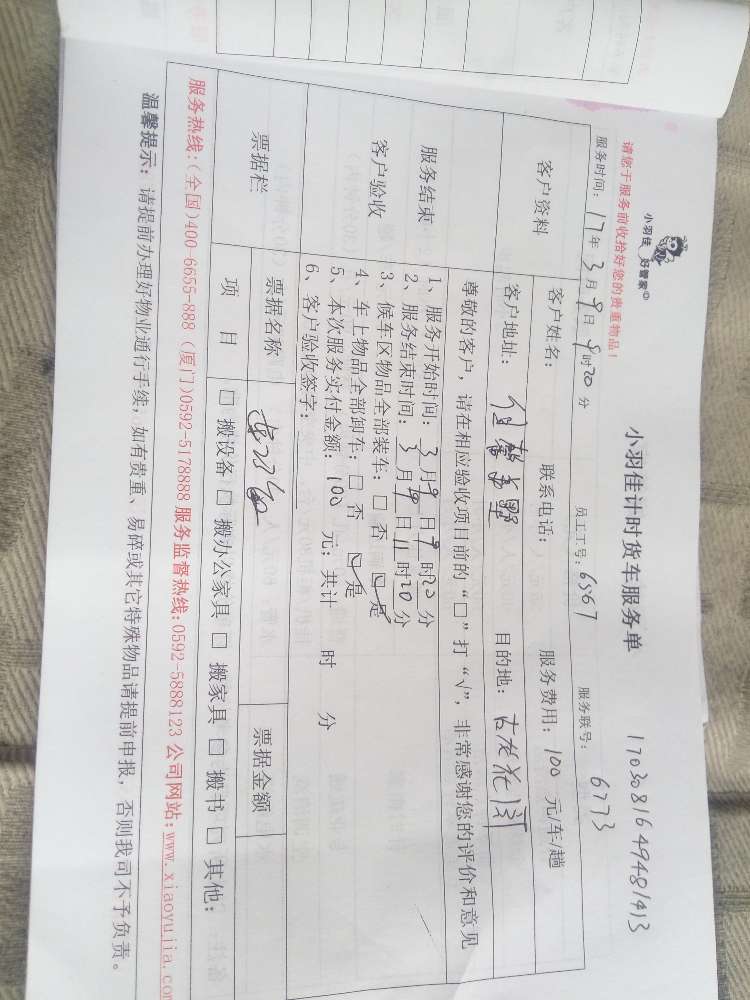 小羽佳 好管家
请您于服务前收拾好您的贵重物品！
小羽佳计时货车服务单
1703081649481413
服务时间：17年3月9日9时20分 员工工号：6567 服务联号：6773
客户资料
客户姓名： 联系电话： 服务费用：100 元/车/趟
客户地址： 目的地：
尊敬的客户，请在相应验收项目前的“□”打“√”，非常感谢您的评价和意见
服务结束
客户验收
1、服务开始时间：3月9日9时20分
2、服务结束时间：3月9日11时20分
3、候车区物品全部装车：□ 否 ☑ 是
4、车上物品全部卸车：□ 否 ☑ 是
5、本次服务实付金额：100 元；共计 时 分
6、客户验收签字：
票据栏 票据名称 票据金额
项 目 □ 搬设备 □ 搬办公家具 □ 搬家具 □ 搬书 □ 其他：
服务热线：（全国）400-6655-888（厦门）0592-5178888 服务监督热线：0592-5888123 公司网站：www.xiaoyujia.com
温馨提示：请提前办理好物业通行手续，如有贵重、易碎或其它特殊物品请提前申报，否则我司不予负责。